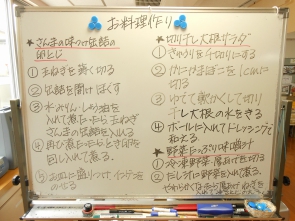 お料理作り
★さんまの味つけ缶詰の
卵とじ
①玉ねぎを薄く切る
②缶詰を開けほぐす
③水、みりん、しょう油を
入れて煮たら玉ねぎ
さんまの缶詰を入れる
④再び煮たらとき卵を
回し入れて煮る。
⑤お皿に盛りつけ
のせる
★切り干し大根サラダ
①きゅうりを千切りにする
②かにかまぼこを
切る
③ゆでて軟かくして切り
干し大根の水をきる
④ボールに入れてドレッシングで
和える
★野菜たっぷり味噌汁
①冷凍野菜、厚あげを切る
②だし汁に野菜を入れて煮る。
やわらかくなったら